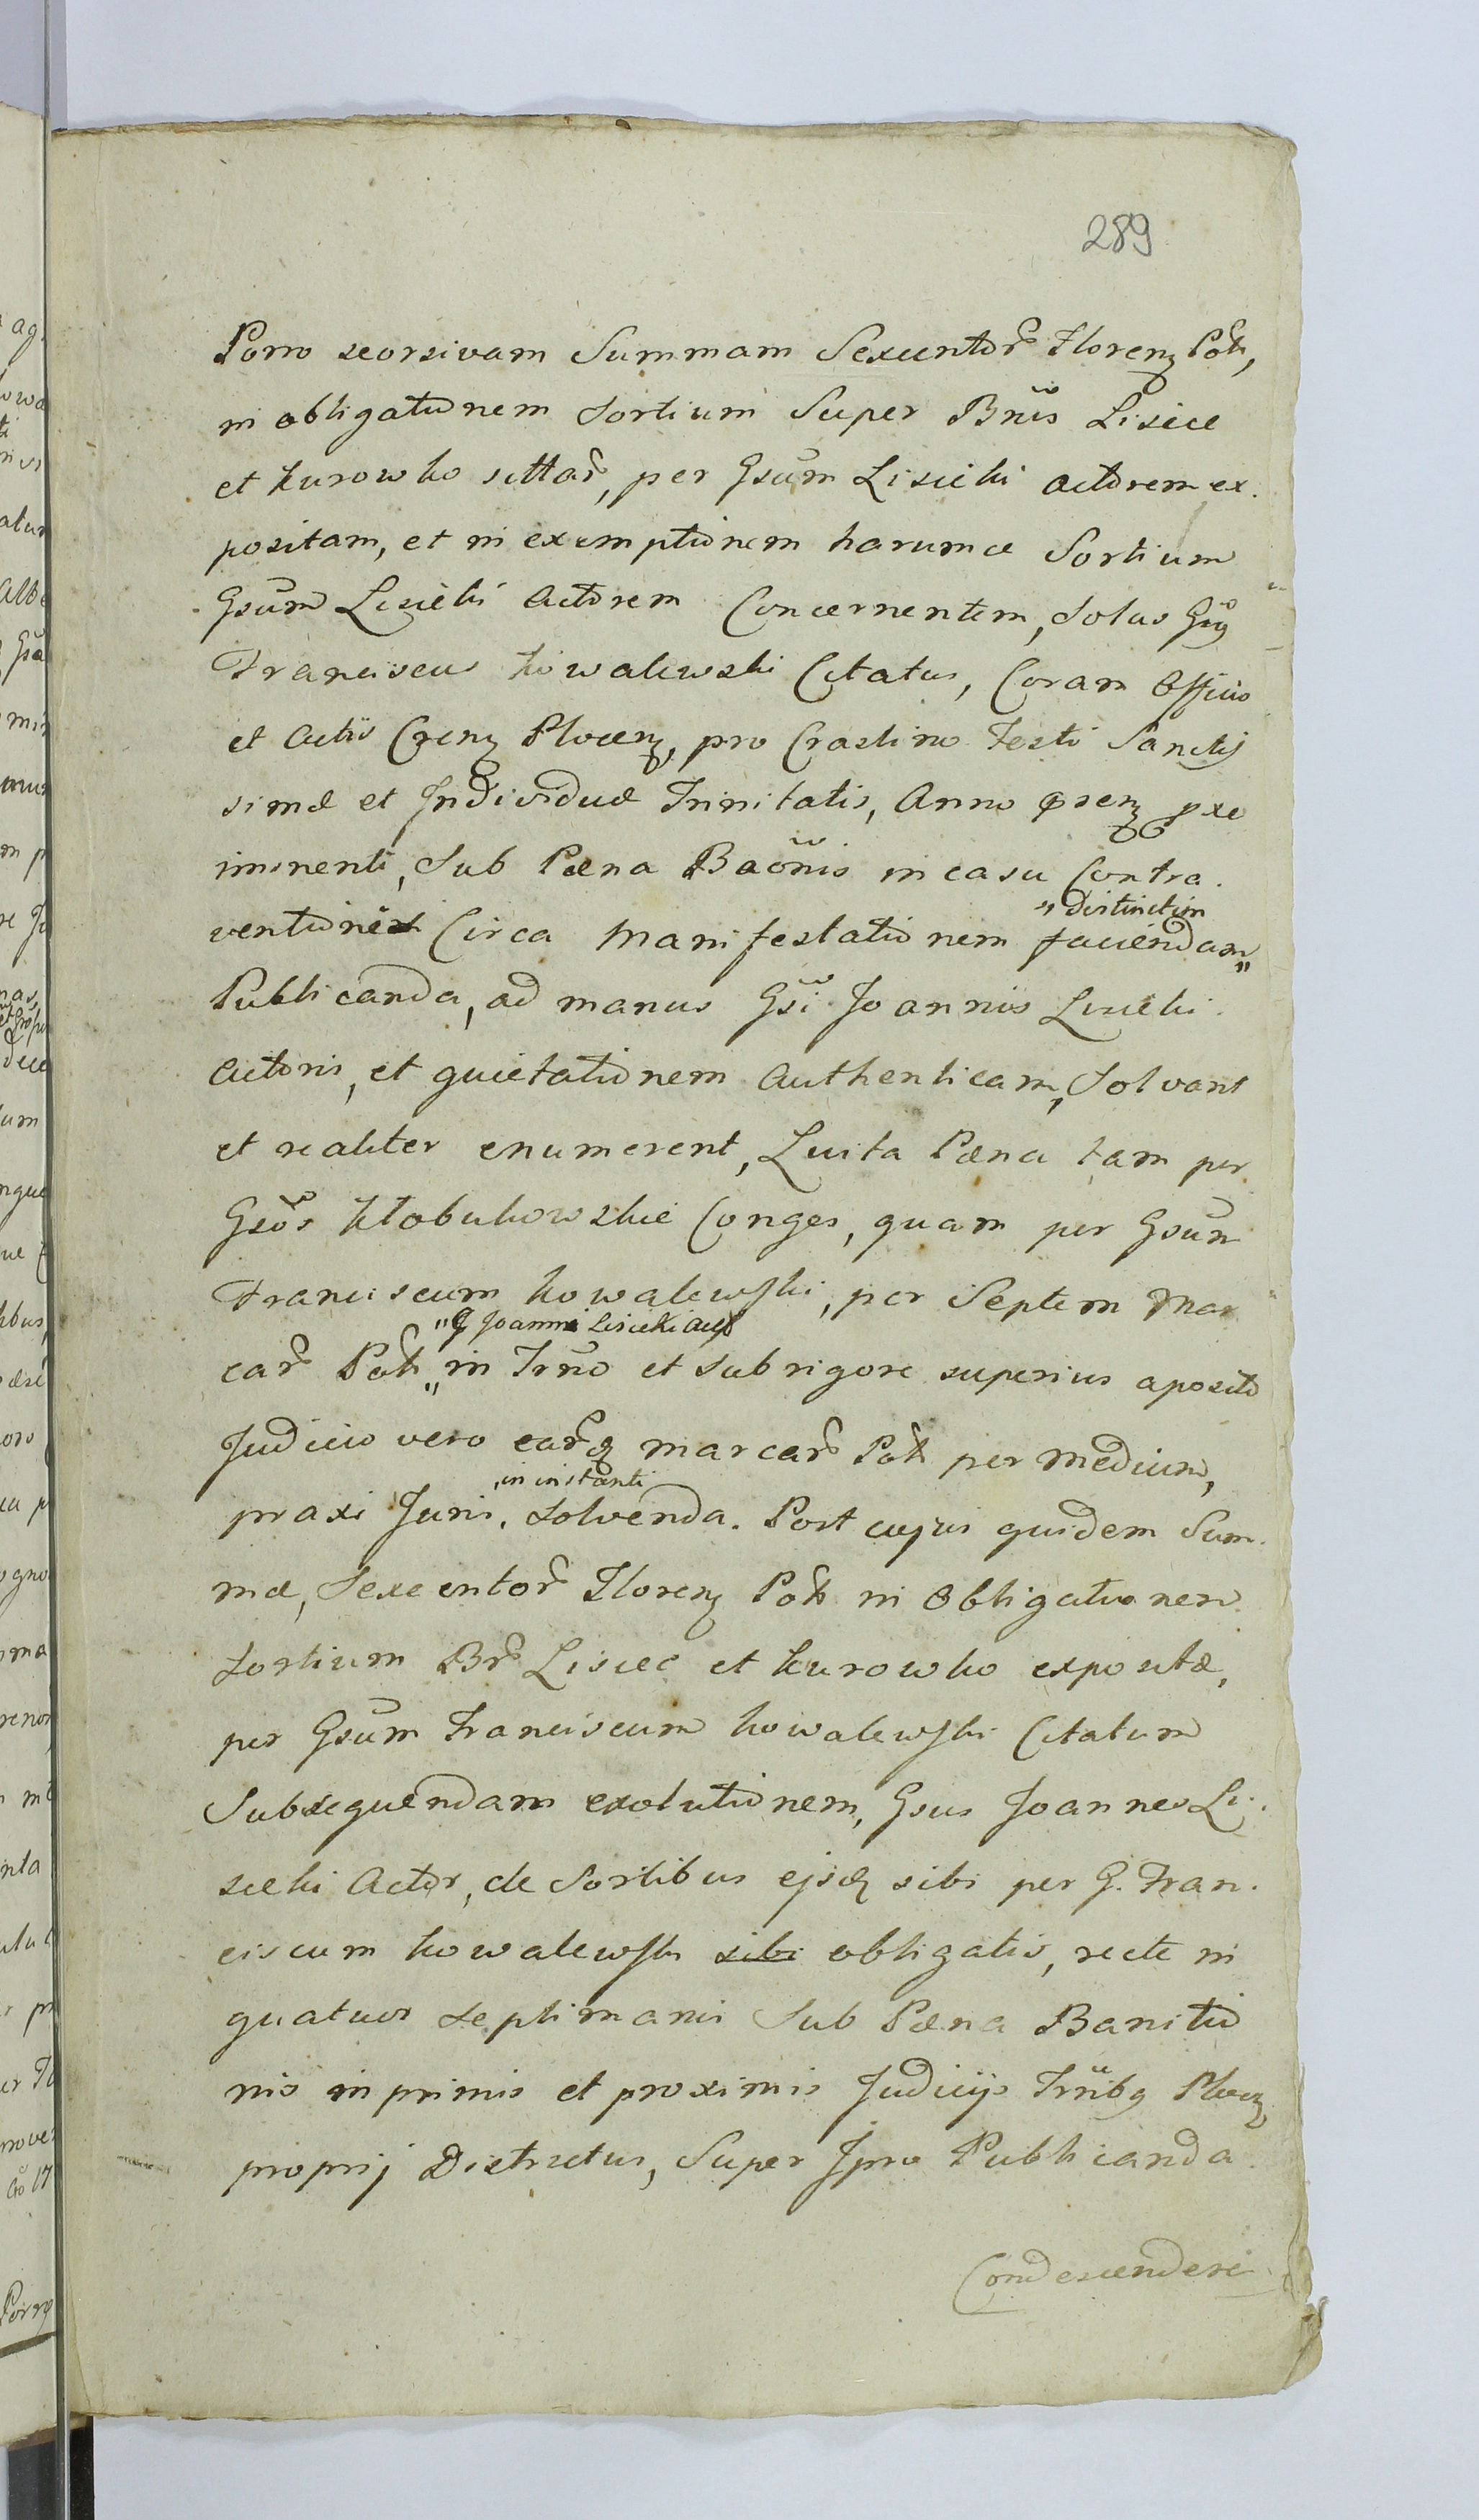 289
Porro seorsivam Summam Sexcentor Floren Pol,
in obligationem Sortium Super Bnis Lisice
et Kurowko sittar, per Gsum Lisicki actorem ex
positam, et in exemptionem harumce Sortium
Gsum Lisicki Actorem Concernentem, Solus Gsus
Franciscus Kowalewski Citatus, Coram Officio
et Actis Cren Plocen, pro Crastino Festi Sanctis
simæ et Individuæ Trinitatis, Anno præsen pxe
iminenti, Sub Pæna Baonis in casu Contra
"distinctim
ventionis Circa Manifestationem faciendam"
Publicanda, ad manus Gsi Joannis Lisicki
Actoris, et quietationem Authenticam, Solvant
et realiter enumerent, Luita Pæna tam per
Gsos Kłobukowskie Conges, quam per Gsum
Franciscum Kowalewski, per Septem Mar
"G Joanni Lisicki act
car Pol" in Trno et sub rigore superius aposito
Judicio vero earq marcar Pol per medium,
in instanti
praxi Juris, solvenda. Post cujus quidem Sum
mæ, Sexcentor Floren Pol in Obligationem
Sortium Br Lisiec et Kurowko expositæ,
per Gsum Franciscum Kowalewski Citatum
Subsequendam exolutionem, Gsus Joannes Li
sicki Actor, de Sortibus ejsd sibi per G. Fran
ciscum Kowalewski sibi obligatis, recte in
quatuor septimanis Sub Pæna Banitio
nis in primis et proximis Judicijs Trnlibq Plocen
proprij Districtus, Super Ipso Publicanda
Condescendere